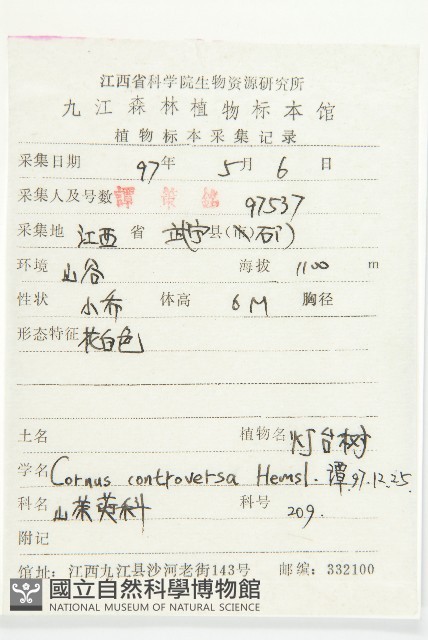 江西省科学院生物资源研究所
九江森林植物标本馆
植物标本采集记录
采集日期 97年 5月 6日
采集人及号数 譚策铭 97537
采集地 江西 省 武宁县(市)石门
环境 山谷 海拔 1100 m
性状 小乔 体高 6M 胸径
形态特征 花白色
土名 植物名 灯台树
学名 Cornus controversa Hemsl. 譚 97.12.25.
科名 山茱萸科 科号 209.
附记
馆址: 江西九江县沙河老街143号 邮编: 332100
國立自然科學博物館
NATIONAL MUSEUM OF NATURAL SCIENCE